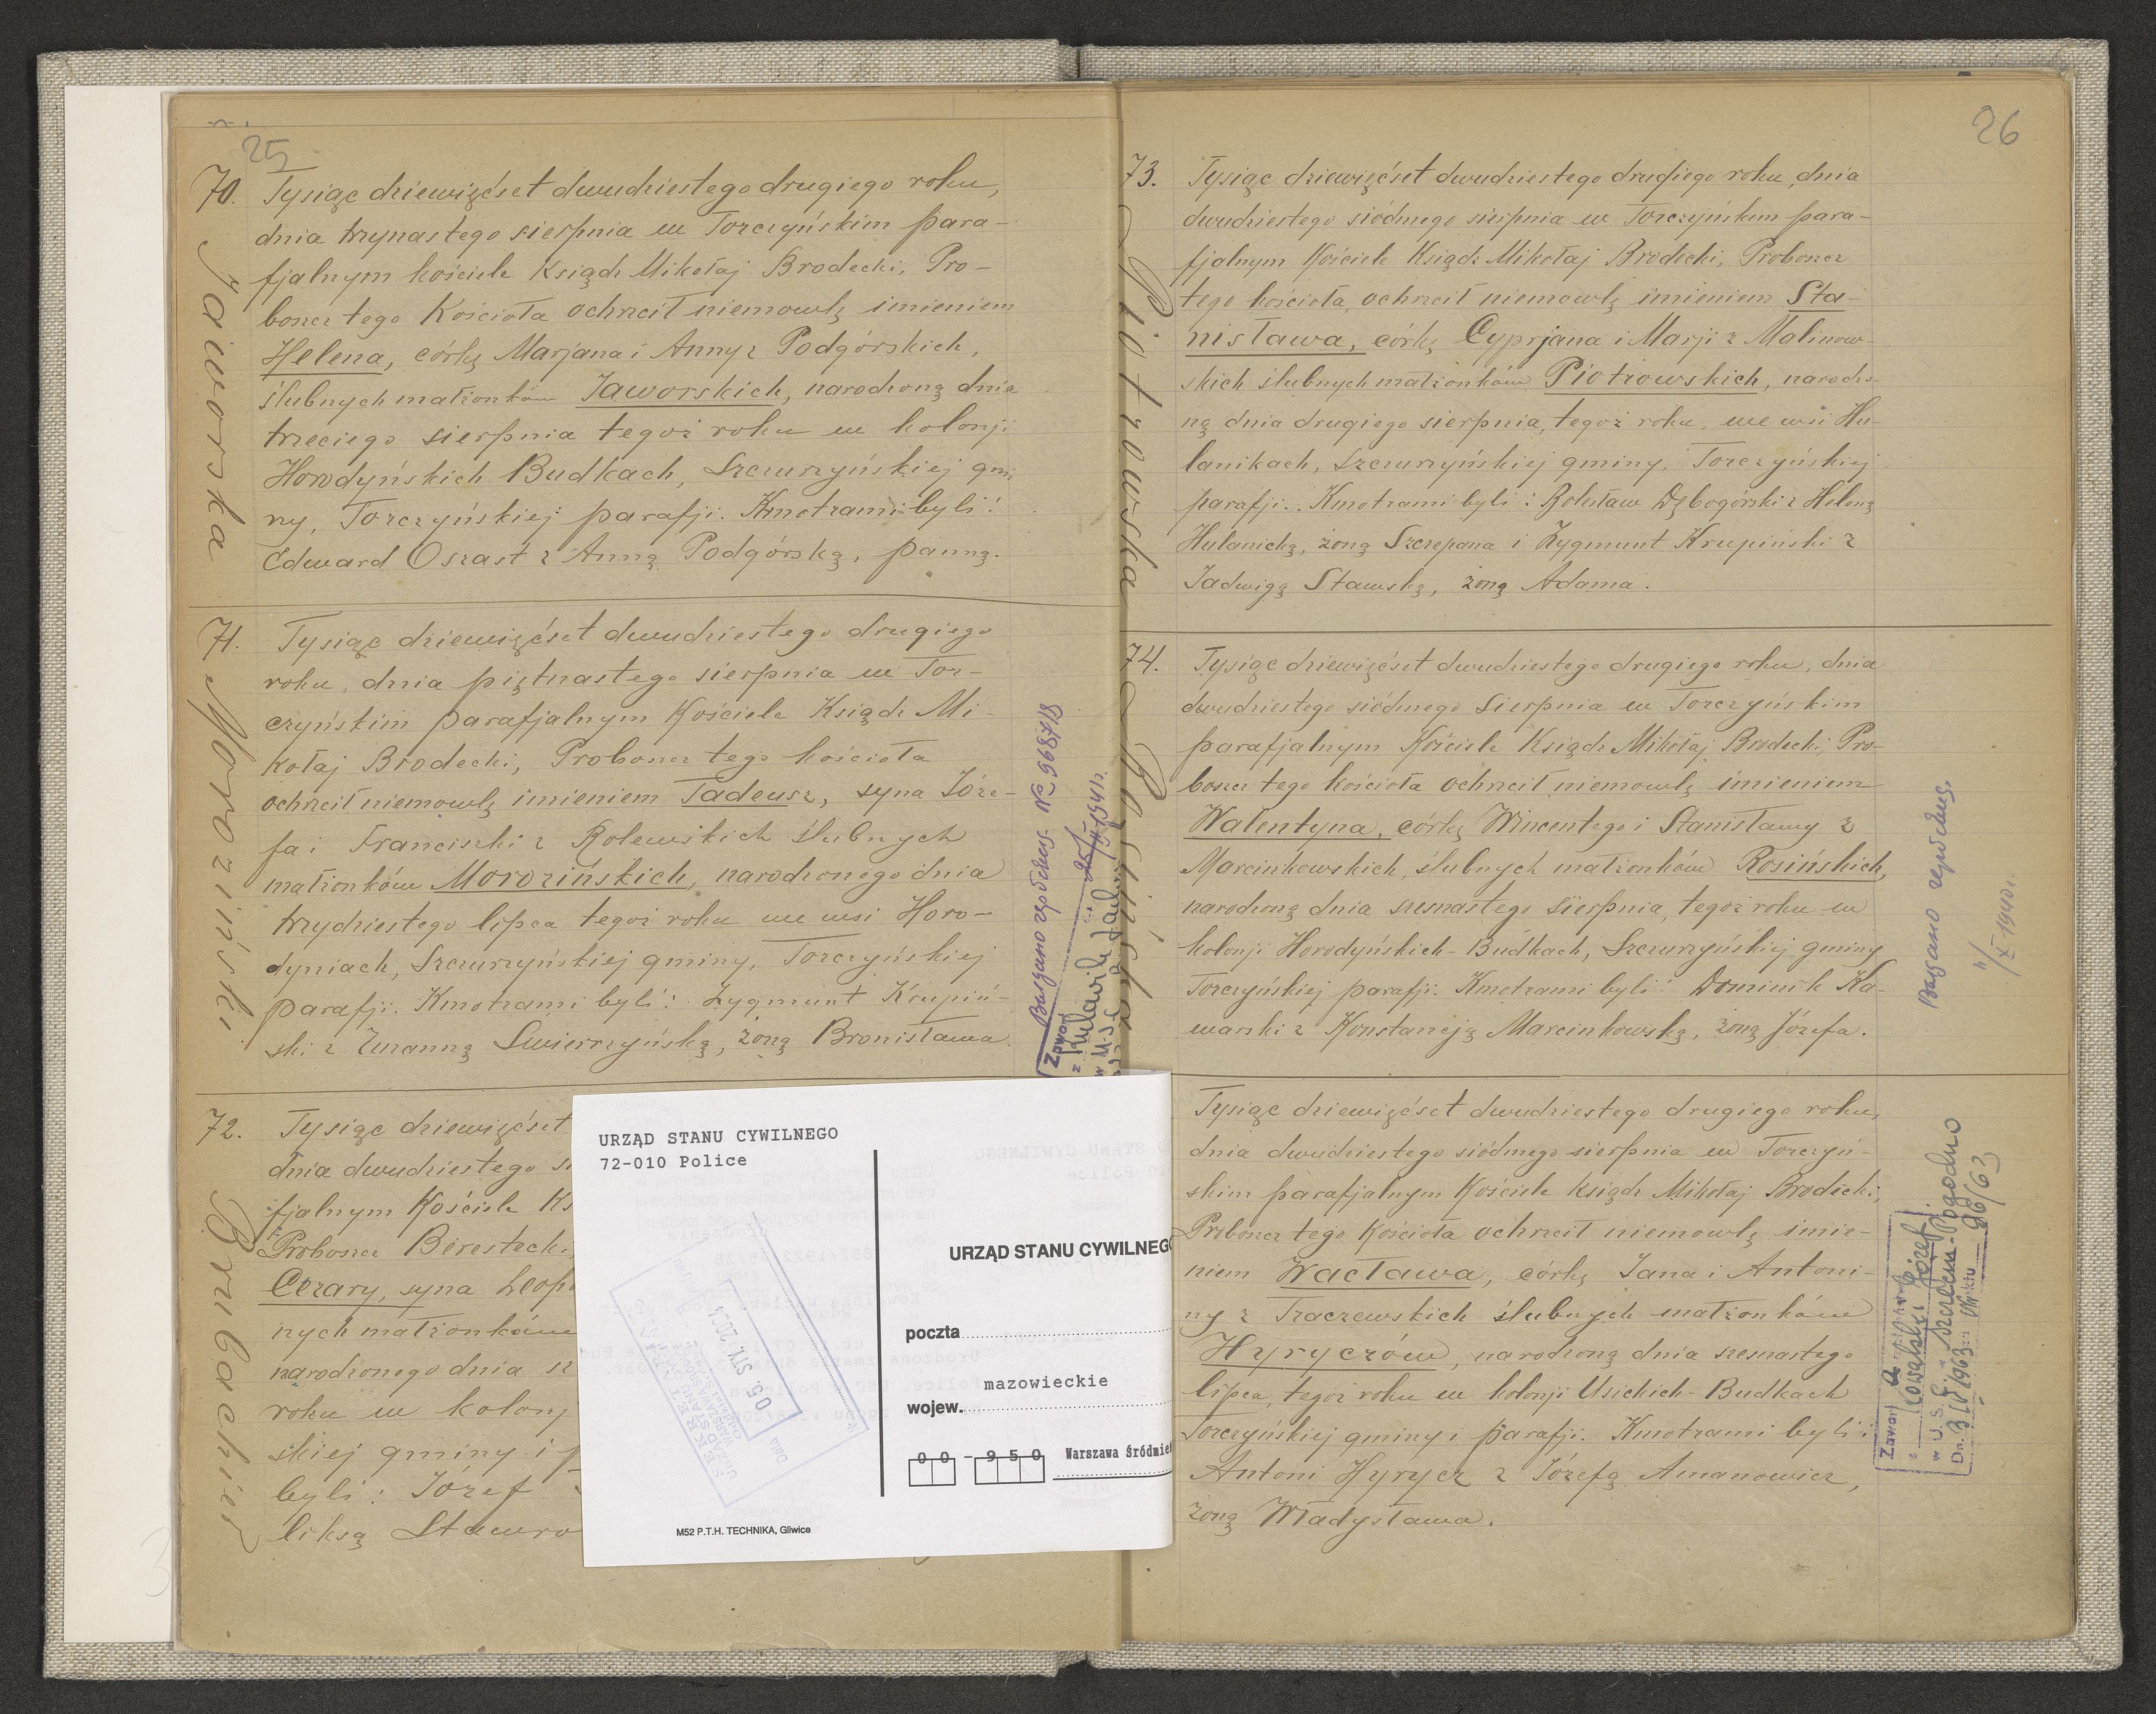 25
70. Tysiąc dziewięćset dwudziestego drugiego roku,
dnia trzynastego sierpnia w Torczyńskim para-
fjalnym kościele Ksiądz Mikołaj Brodecki, Pro-
boszcz tego Kościoła ochrzcił niemowlę imieniem
Helena, córkę Marjana i Anny z Podgórskich,
ślubnych małżonków Jaworskich, narodzoną dnia
trzeciego sierpnia tegoż roku w kolonji
Horodyńskich Budkach, Szczurzyńskiej gmi
ny, Torczyńskiej parafji. Kmotrami byli:
Edward Oszast z Anną Podgórską, panną.
Jaworska
71. Tysiąc dziewięćset dwudziestego drugiego
roku, dnia piętnastego sierpnia w Tor-
czyńskim parafjalnym Kościele Ksiądz Mi-
kołaj Brodecki, Proboszcz tego kościoła
ochrzcił niemowlę imieniem Tadeusz, syna Józe-
fa i Franciszki z Rolewskich ślubnych
małżonków Morozińskich, narodzonego dnia
trzydziestego lipca tegoż roku we wsi Horo-
dyniach, Szczurzyńskiej gminy, Torczyńskiej
parafji. Kmotrami byli: Zygmunt Krupiń-
ski z Zuzanną Swierczyńską, żoną Bronisława.
Moroziński
№ 968718
Zawarł
72. Tysiąc dziewięćset
dnia dwudziestego
fjalnym Kościele
Proboszcz Berestecki
Cezary, syna Leop
nych małżonków
narodzonego dnia
roku w kolonj
skiej gminy i
byli: Józef
liksą Stawro
URZĄD STANU CYWILNEGO
72-010 Police
URZĄD STANU CYWILNEG
poczta
mazowieckie
wojew.
00-950 Warszawa Śródmieś
05. STY. 2004
Data
M52 P.T.H. TECHNIKA, Gliwice
26
73. Tysiąc dziewięćset dwudziestego drugiego roku, dnia
dwudziestego siódmego sierpnia w Torczyńskim para-
fjalnym Kościele Ksiądz Mikołaj Brodecki, Proboszcz
tego kościoła, ochrzcił niemowlę imieniem Sta-
nisława, córkę Cyprjana i Marji z Malinow-
skich ślubnych małżonków Piotrowskich, narodzo-
ną dnia drugiego sierpnia, tegoż roku, we wsi Hu-
lanikach, Szczurzyńskiej gminy, Torczyńskiej
parafji. Kmotrami byli: Bolesław Dębogórski z Heleną
Hulanicką, żoną Szczepana i Zygmunt Krupiński z
Jadwigą Stawską, żoną Adama.
Piotrowska
74. Tysiąc dziewięćset dwudziestego drugiego roku, dnia
dwudziestego siódmego Sierpnia w Torczyńskim
parafjalnym Kościele Ksiądz Mikołaj Brodecki, Pro-
boszcz tego kościoła ochrzcił niemowlę imieniem
Walentyna, córkę Wincentego i Stanisławy z
Marcinkowskich, ślubnych małżonków Rosińskich,
narodzoną dnia szesnastego Sierpnia, tegoż roku w
kolonji Horodyńskich-Budkach, Szczurzyńskiej gminy
Torczyńskiej parafji. Kmotrami byli: Dominik Ka-
warski z Konstancją Marcinkowską, żoną Józefa.
Rosińska
Tysiąc dziewięćset dwudziestego drugiego roku,
dnia dwudziestego siódmego sierpnia w Torczyń-
skim parafjalnym Kościele Ksiądz Mikołaj Brodecki,
Proboszcz tego Kościoła ochrzcił niemowlę imie-
niem Wacława, córkę Jana i Antoni-
ny z Traczewskich ślubnych małżonków
Hyryczów, narodzoną dnia szesnastego
lipca, tegoż roku w kolonji Usickich-Budkach
Torczyńskiej gminy i parafji. Kmotrami byli:
Antoni Hyrycz z Józefą Amanowicz,
żoną Władysława.
Zawarł
Kowalski Józef
w U.S.C. Szczecin-Pogodno
1963 Nr aktu 96/63